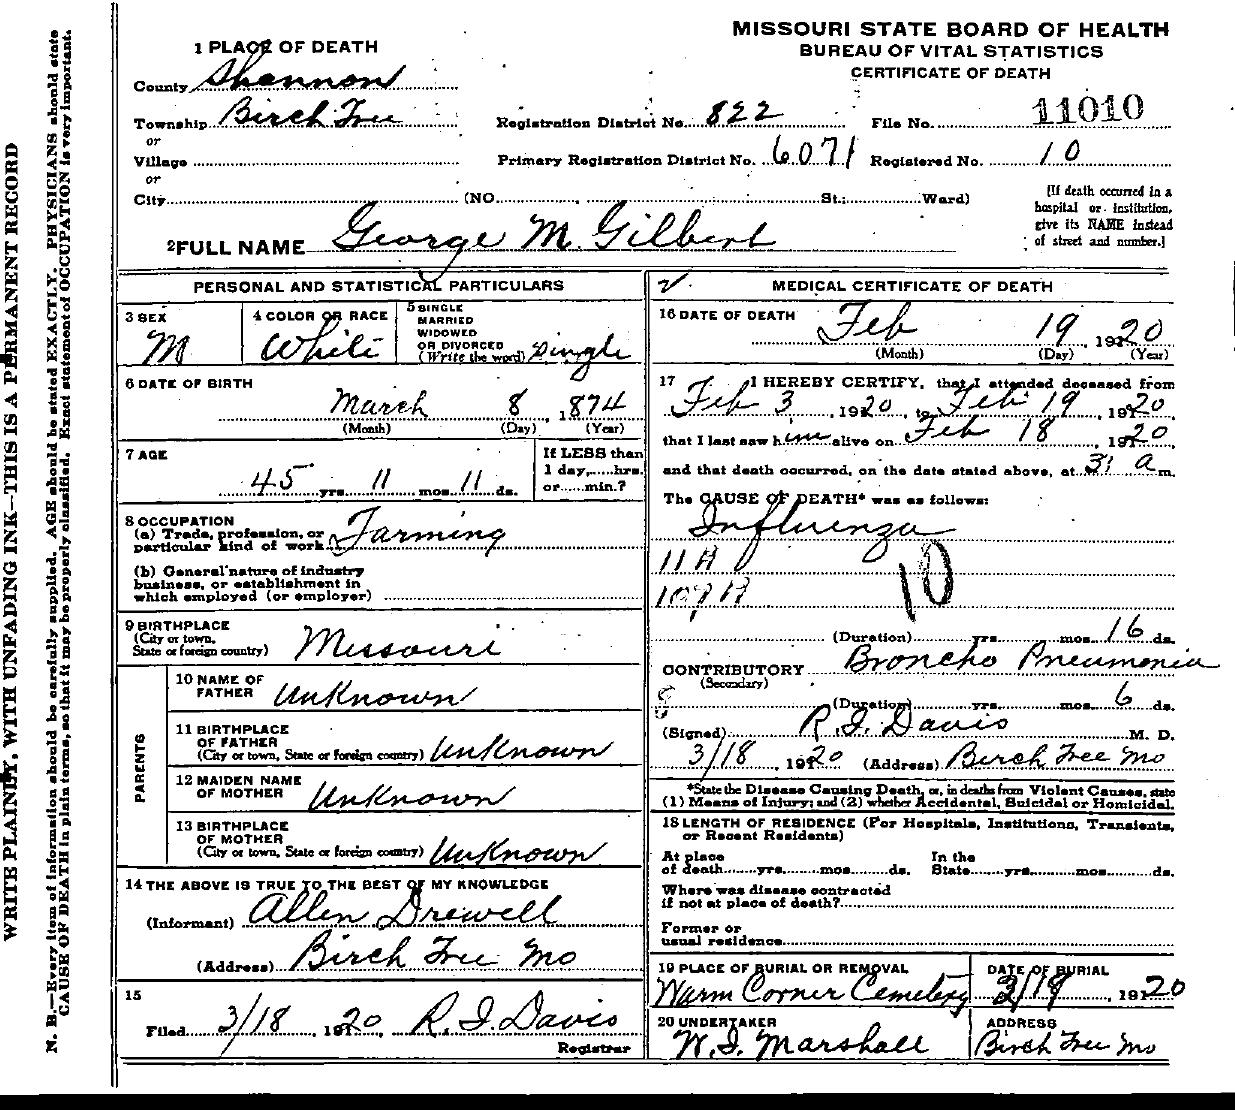 MISSOURI STATE BOARD OF HEALTH
BUREAU OF VITAL STATISTICS
CERTIFICATE OF DEATH
1 PLACE OF DEATH
County Shannon
Township Birch Tree
or
Village
or
City (NO. St.; Ward)
Registration District No. 822
File No. 11010
Primary Registration District No. 6071
Registered No. 10
[If death occurred in a
hospital or institution,
give its NAME instead
of street and number.]
2 FULL NAME George M Gilbert
PERSONAL AND STATISTICAL PARTICULARS
3 SEX
M
4 COLOR OR RACE
White
5 SINGLE
MARRIED
WIDOWED
OR DIVORCED
(Write the word) Single
6 DATE OF BIRTH
March 8, 1874
(Month) (Day) (Year)
7 AGE
45 yrs. 11 mos. 11 ds.
If LESS than
1 day,.....hrs.
or......min.?
8 OCCUPATION
(a) Trade, profession, or
particular kind of work Farming
(b) General nature of industry
business, or establishment in
which employed (or employer)
9 BIRTHPLACE
(City or town,
State or foreign country) Missouri
PARENTS
10 NAME OF
FATHER Unknown
11 BIRTHPLACE
OF FATHER
(City or town, State or foreign country) Unknown
12 MAIDEN NAME
OF MOTHER Unknown
13 BIRTHPLACE
OF MOTHER
(City or town, State or foreign country) Unknown
14 THE ABOVE IS TRUE TO THE BEST OF MY KNOWLEDGE
(Informant) Allen Drewell
(Address) Birch Tree Mo
15
Filed 3/18, 1920 R. I. Davis
Registrar
MEDICAL CERTIFICATE OF DEATH
16 DATE OF DEATH
Feb 19, 1920
(Month) (Day) (Year)
17 I HEREBY CERTIFY, that I attended deceased from
Feb 3, 1920, to Feb 19, 1920
that I last saw him alive on Feb 18, 1920
and that death occurred, on the date stated above, at 3 a m.
The CAUSE OF DEATH* was as follows:
Influenza
11 A
10
107 A
(Duration) yrs. mos. 16 ds.
CONTRIBUTORY Broncho Pneumonia
(Secondary)
(Duration) yrs. mos. 6 ds.
(Signed) R. I. Davis M. D.
3/18, 1920 (Address) Birch Tree Mo
*State the Disease Causing Death, or, in deaths from Violent Causes, state
(1) Means of Injury; and (2) whether Accidental, Suicidal or Homicidal.
18 LENGTH OF RESIDENCE (For Hospitals, Institutions, Transients,
or Recent Residents)
At place In the
of death.......yrs.......mos.......ds. State.......yrs.......mos.......ds.
Where was disease contracted
if not at place of death?
Former or
usual residence
19 PLACE OF BURIAL OR REMOVAL
Warm Corner Cemetery
DATE OF BURIAL
1920
20 UNDERTAKER
W. I. Marshall
ADDRESS
Birch Tree Mo
WRITE PLAINLY, WITH UNFADING INK—THIS IS A PERMANENT RECORD
N. B.—Every item of information should be carefully supplied. AGE should be stated EXACTLY. PHYSICIANS should state
CAUSE OF DEATH in plain terms, so that it may be properly classified. Exact statement of OCCUPATION is very important.